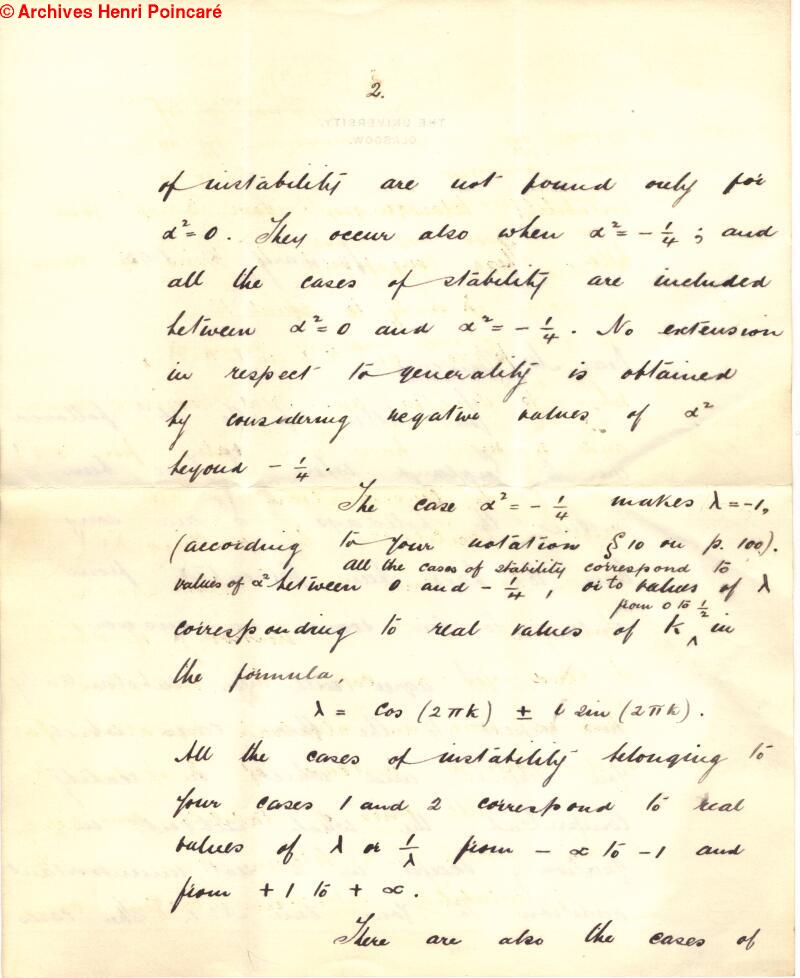 © Archives Henri Poincaré
2.
THE UNIVERSITY,
GLASGOW.
of instability are not found only for
α²=0. They occur also when α² = -1/4 ; and
all the cases of stability are included
between α²=0 and α² = -1/4. No extension
in respect to generality is obtained
by considering negative values of α²
beyond -1/4.
The case α² = -1/4 makes λ=-1,
(according to your notation § 10 on p. 100).
all the cases of stability correspond to
values of α² between 0 and -1/4, or to values of λ
from 0 to 1/2
corresponding to real values of k ‸ in
the formula,
λ = cos (2πk) ± i sin (2πk).
All the cases of instability belonging to
your cases 1 and 2 correspond to real
values of λ or 1/λ from -∞ to -1 and
from +1 to +∞.
There are also the cases of